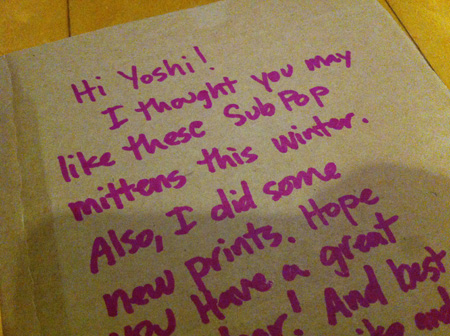 Hi Yoshi!
I thought you may
like these Sub Pop
mittens this winter.
Also, I did some
new prints. Hope
you Have a great
And best